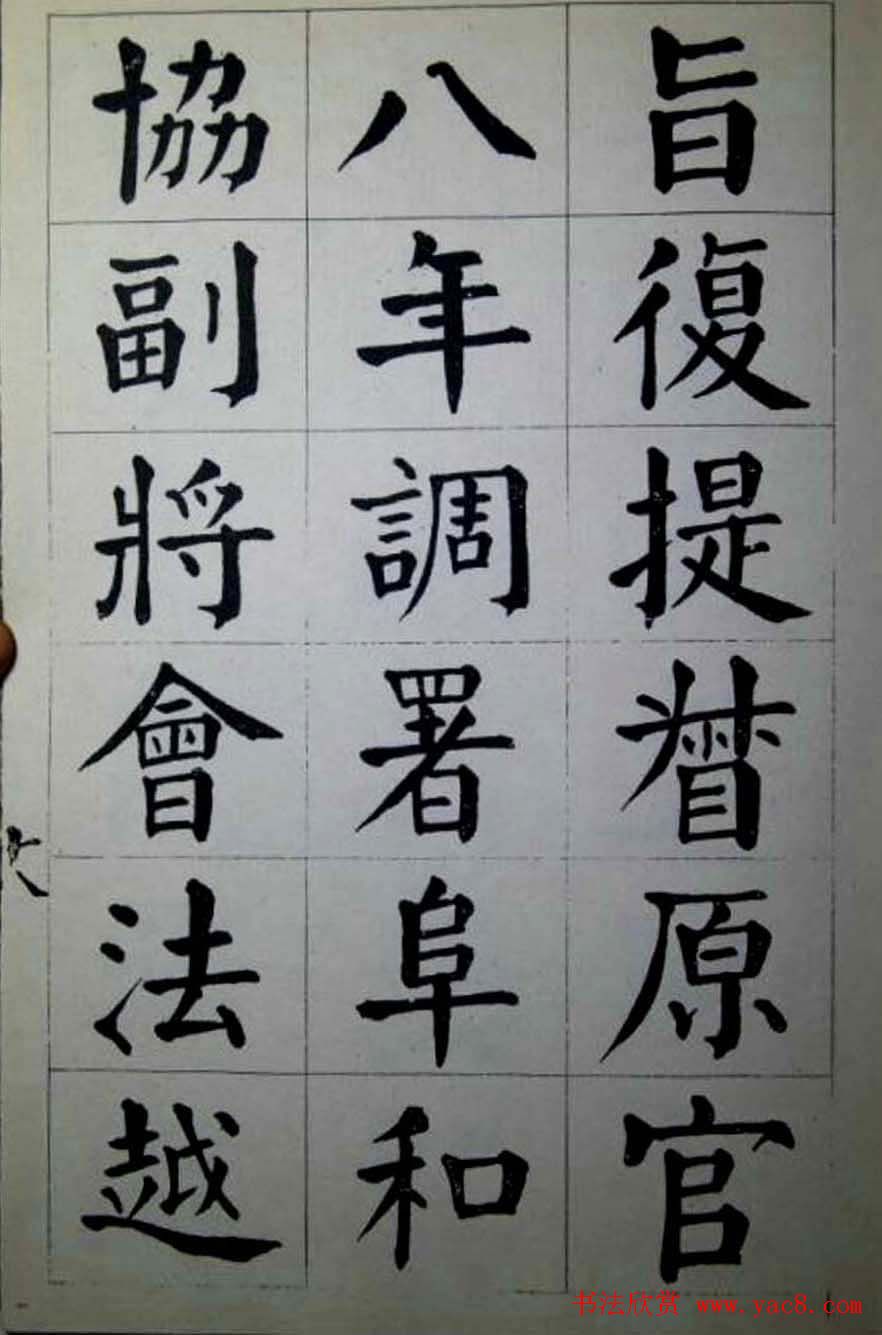 旨復提督原官
八年調署阜和
協副將會法越
书法欣赏 www.yac8.com